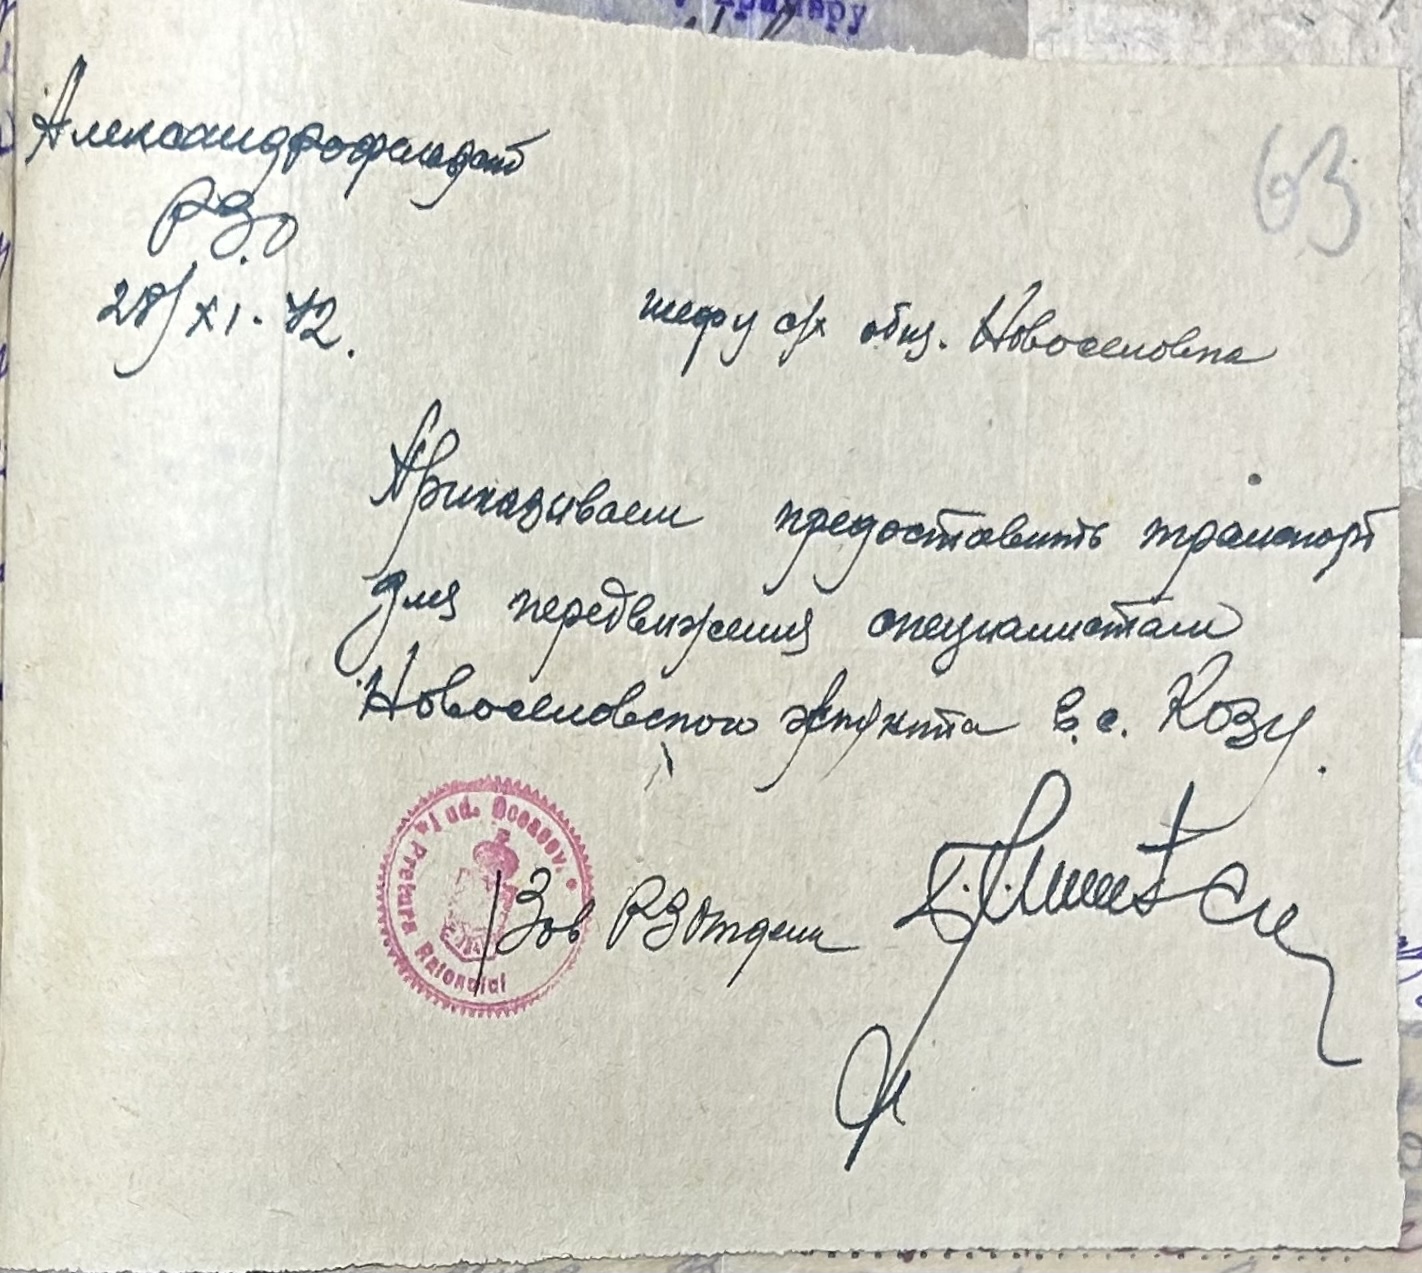 примеру
63
Александрофельдт
РЗО
28/XI.42.
шефу с/х общ. Новоселовка
Приказываем предоставить транспорт
для передвижения специалистам
Новоселовского в. с. Козу.
Jud. Oceacov.
Pretura Raională
Зав РЗОтдела